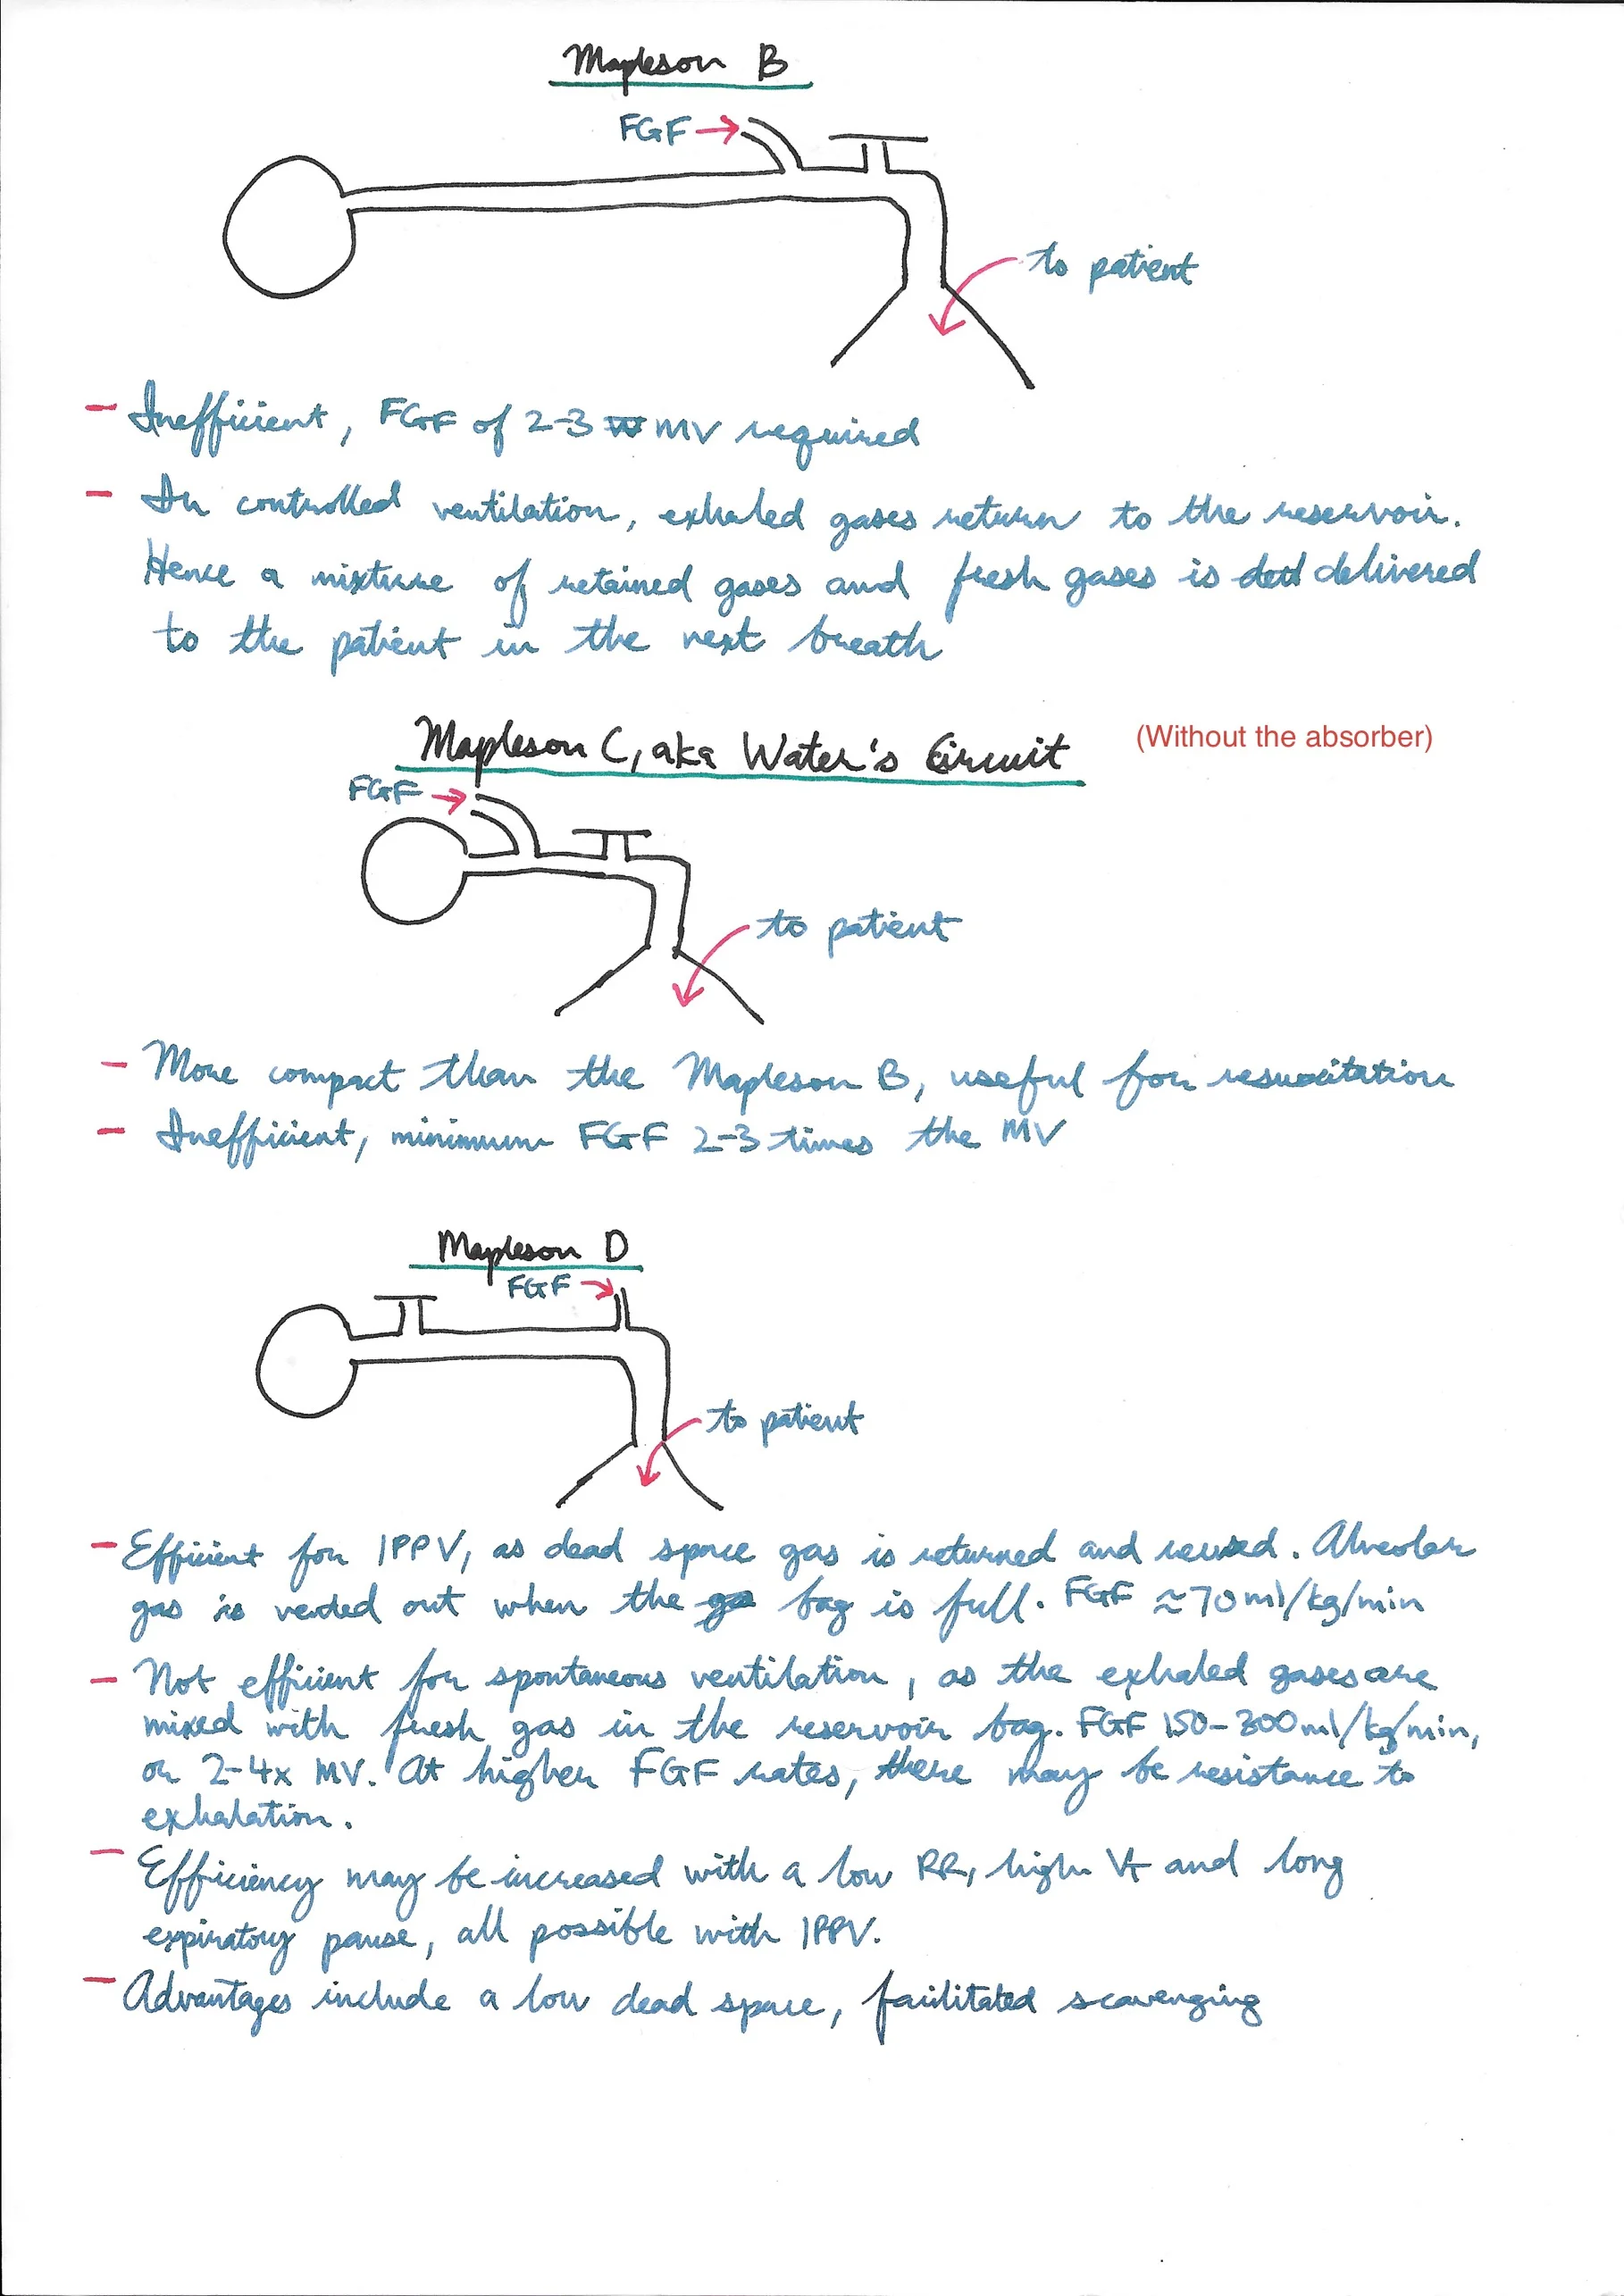 Mapleson B
FGF
to patient
- Inefficient, FGF of 2-3 MV required
- In controlled ventilation, exhaled gases return to the reservoir.
Hence a mixture of retained gases and fresh gases is delivered
to the patient in the next breath
Mapleson C, aka Water's Circuit
(Without the absorber)
FGF
to patient
- More compact than the Mapleson B, useful for resuscitation
- Inefficient, minimum FGF 2-3 times the MV
Mapleson D
FGF
to patient
- Efficient for IPPV, as dead space gas is returned and reused. Alveolar
gas is vented out when the bag is full. FGF ≈70ml/kg/min
- Not efficient for spontaneous ventilation, as the exhaled gases are
mixed with fresh gas in the reservoir bag. FGF 150-300ml/kg/min,
or 2-4x MV. At higher FGF rates, there may be resistance to
exhalation.
- Efficiency may be increased with a low RR, high VT and long
expiratory pause, all possible with IPPV.
- Advantages include a low dead space, facilitated scavenging